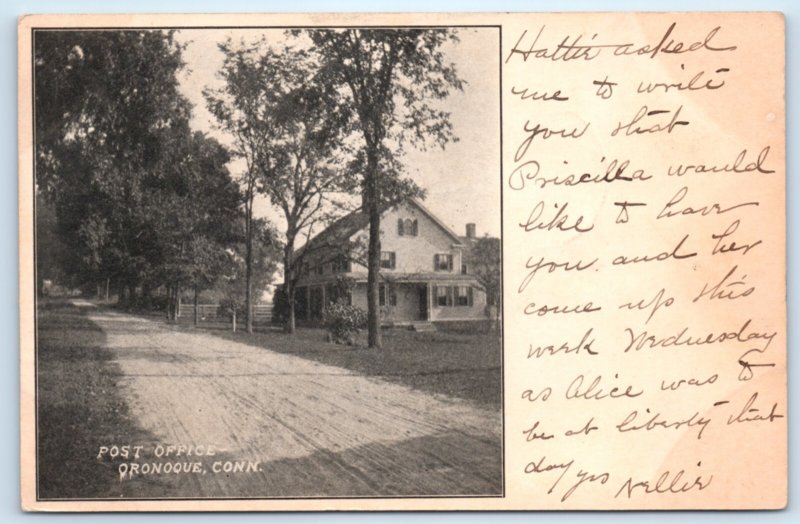 POST OFFICE
ORONOQUE, CONN.
Hattie asked
me to write
you that
Priscilla would
like to have
you and her
come up this
week Wednesday
as Alice was to
be at liberty that
day yrs Nellie